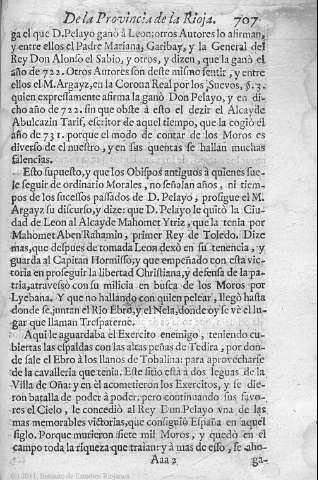 De la Provincia de la Rioja. 707
ga el que D. Pelayo ganò à Leon; otros Autores lo afirman,
y entre ellos el Padre Mariana, Garibay, y la General del
Rey Don Alonso el Sabio, y otros, y dizen, que la ganò el
año de 722. Otros Autores son deste mismo sentir, y entre
ellos el M. Argayz, en la Corona Real por los Suevos, §. 3.
quien expressamente afirma la ganò Don Pelayo, y en di-
cho año de 722. sin que obste à esto el dezir el Alcayde
Abulcazin Tarif, escritor de aquel tiempo, que la cogiò el
año de 731. porque el modo de contar de los Moros es
diverso de el nuestro, y en sus quentas se hallan muchas
falencias.
Esto supuesto, y que los Obispos antiguos à quienes sue-
le seguir de ordinario Morales, no señalan años, ni tiem-
pos de los sucessos passados de D. Pelayo, prosigue el M.
Argayz su discurso, y dize: que D. Pelayo le quitò la Ciu-
dad de Leon al Alcayde Mahomet Ytriz, que la tenia por
Mahomet Aben Rahamin, primer Rey de Toledo. Dize
mas, que despues de tomada Leon dexò en su tenencia, y
guarda al Capitan Hormisso; y que empeñado con esta vic-
toria en proseguir la libertad Christiana, y defensa de la pa-
tria, atravessò con su milicia en busca de los Moros por
Lyebana. Y que no hallando con quien pelear, llegò hasta
donde se juntan el Rio Ebro, y el Nela, donde oy se vè el lu-
gar que llaman Trespaterne.
Aqui le aguardaba el Exercito enemigo, teniendo cu-
biertas las espaldas con las altas peñas de Tedira, por don-
de sale el Ebro à los llanos de Tobalina: para aprovecharse
de la cavalleria que tenia. Este sitio està à dos leguas de la
Villa de Oña: y en èl acometieron los Exercitos, y se die-
ron batalla de poder à poder: pero continuando sus favo-
res el Cielo, le concediò al Rey Don Pelayo vna de las
mas memorables victorias, que consiguiò España en aquel
siglo. Porque murieron siete mil Moros, y quedò en el
campo toda la riqueza que traian: y à mas de esso, se aho-
Aaa 2 ga-
(c) 2011, Instituto de Estudios Riojanos